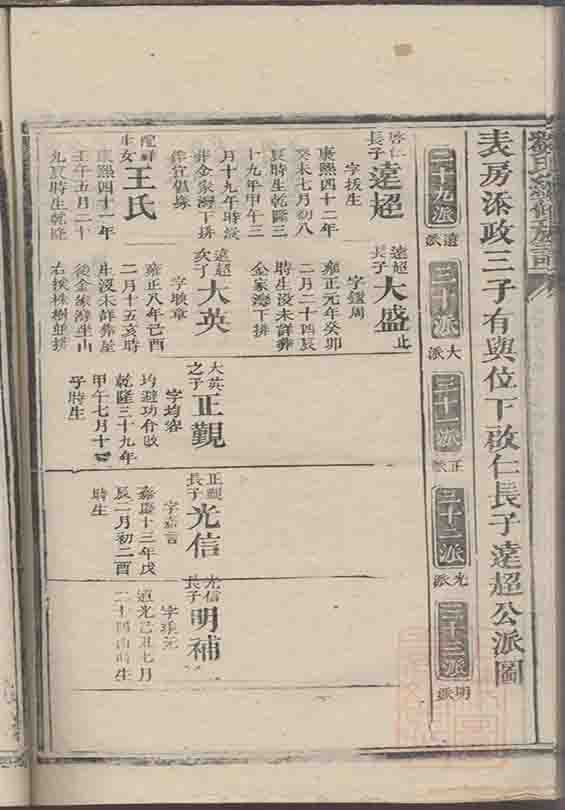 劉氏續修族譜
表房添政三子有與位下啟仁長子遠超公派圖
二十九派
遠派
三十派
大派
三十一派
正派
三十二派
光派
三十三派
明派
啓仁長子遠超
字拔生
康熙四十二年
癸未七月初八
辰時生乾隆三
十九年甲午三
月十九年時沒
葬金家灣下排
配
生女王氏
康熙四十一年
壬午五月二十
九辰時生乾隆
遠超長子大盛止
字鎧周
雍正元年癸卯
二月二十四辰
時生沒未詳葬
金家灣下排
遠超次子大英
字
章
雍正八年己酉
二月十五亥時
生沒未詳葬屋
後金家灣坐山
右挨株樹並排
大英之子正觀
字均容
均避功介改
乾隆三十九年
甲午七月十四
子時生
正觀長子光信
字嘉言
嘉慶十三年戊
辰二月初二酉
時生
光信長子明補
字
元
道光己丑七月
二十四酉時生